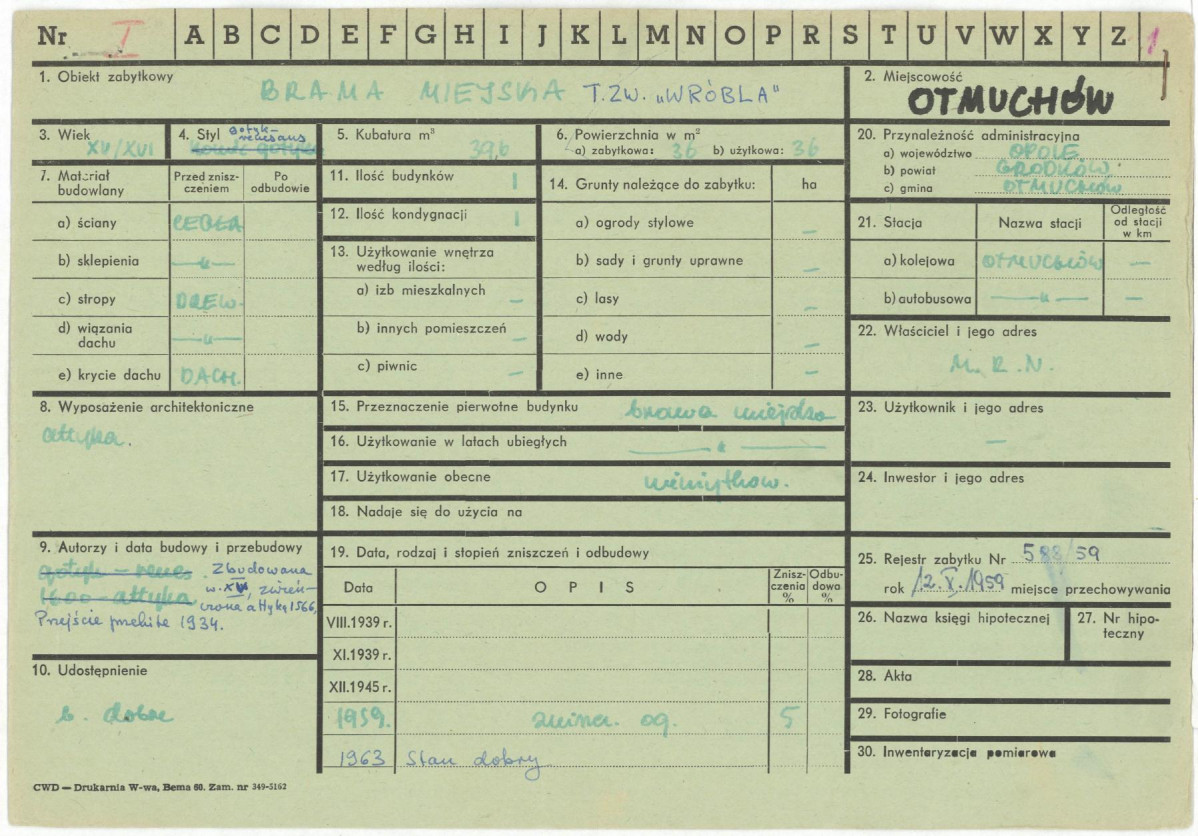 Nr I A B C D E F G H I J K L M N O P R S T U V W X Y Z 1
1. Obiekt zabytkowy
BRAMA MIEJSKA T.ZW. „WRÓBLA"
2. Miejscowość
OTMUCHÓW
3. Wiek
XV/XVI
4. Styl gotyk-
renesans
5. Kubatura m³
39,6
6. Powierzchnia w m²
a) zabytkowa: 36 b) użytkowa: 36
20. Przynależność administracyjna
a) województwo OPOLE
b) powiat GRODKÓW
c) gmina OTMUCHÓW
7. Materiał budowlany
Przed zniszczeniem
Po odbudowie
a) ściany CEGŁA
b) sklepienia —„—
c) stropy DREW.
d) wiązania dachu —„—
e) krycie dachu DACH.
11. Ilość budynków 1
12. Ilość kondygnacji 1
13. Użytkowanie wnętrza
według ilości:
a) izb mieszkalnych —
b) innych pomieszczeń —
c) piwnic —
14. Grunty należące do zabytku: ha
a) ogrody stylowe —
b) sady i grunty uprawne —
c) lasy —
d) wody —
e) inne —
21. Stacja Nazwa stacji Odległość od stacji w km
a) kolejowa OTMUCHÓW —
b) autobusowa —„— —
22. Właściciel i jego adres
M. R. N.
8. Wyposażenie architektoniczne
attyka.
15. Przeznaczenie pierwotne budynku brama miejska
16. Użytkowanie w latach ubiegłych —„—
17. Użytkowanie obecne nieużytkow.
18. Nadaje się do użycia na
23. Użytkownik i jego adres
—
24. Inwestor i jego adres
9. Autorzy i data budowy i przebudowy
gotyk – renes. Zbudowana
1600 – attyka w. XV, zwień-
czona attyką 1566,
Przejście przebite 1934.
19. Data, rodzaj i stopień zniszczeń i odbudowy
Data OPIS Zniszczenia % Odbudowa %
VIII.1939 r.
XI.1939 r.
XII.1945 r.
1959. 5
1963 Stan dobry
25. Rejestr zabytku Nr 588/59
rok 12.X.1959 miejsce przechowywania
26. Nazwa księgi hipotecznej
27. Nr hipo-
teczny
28. Akta
29. Fotografie
30. Inwentaryzacja pomiarowa
10. Udostępnienie
b. dobre
CWD — Drukarnia W-wa, Bema 60. Zam. nr 349-5162